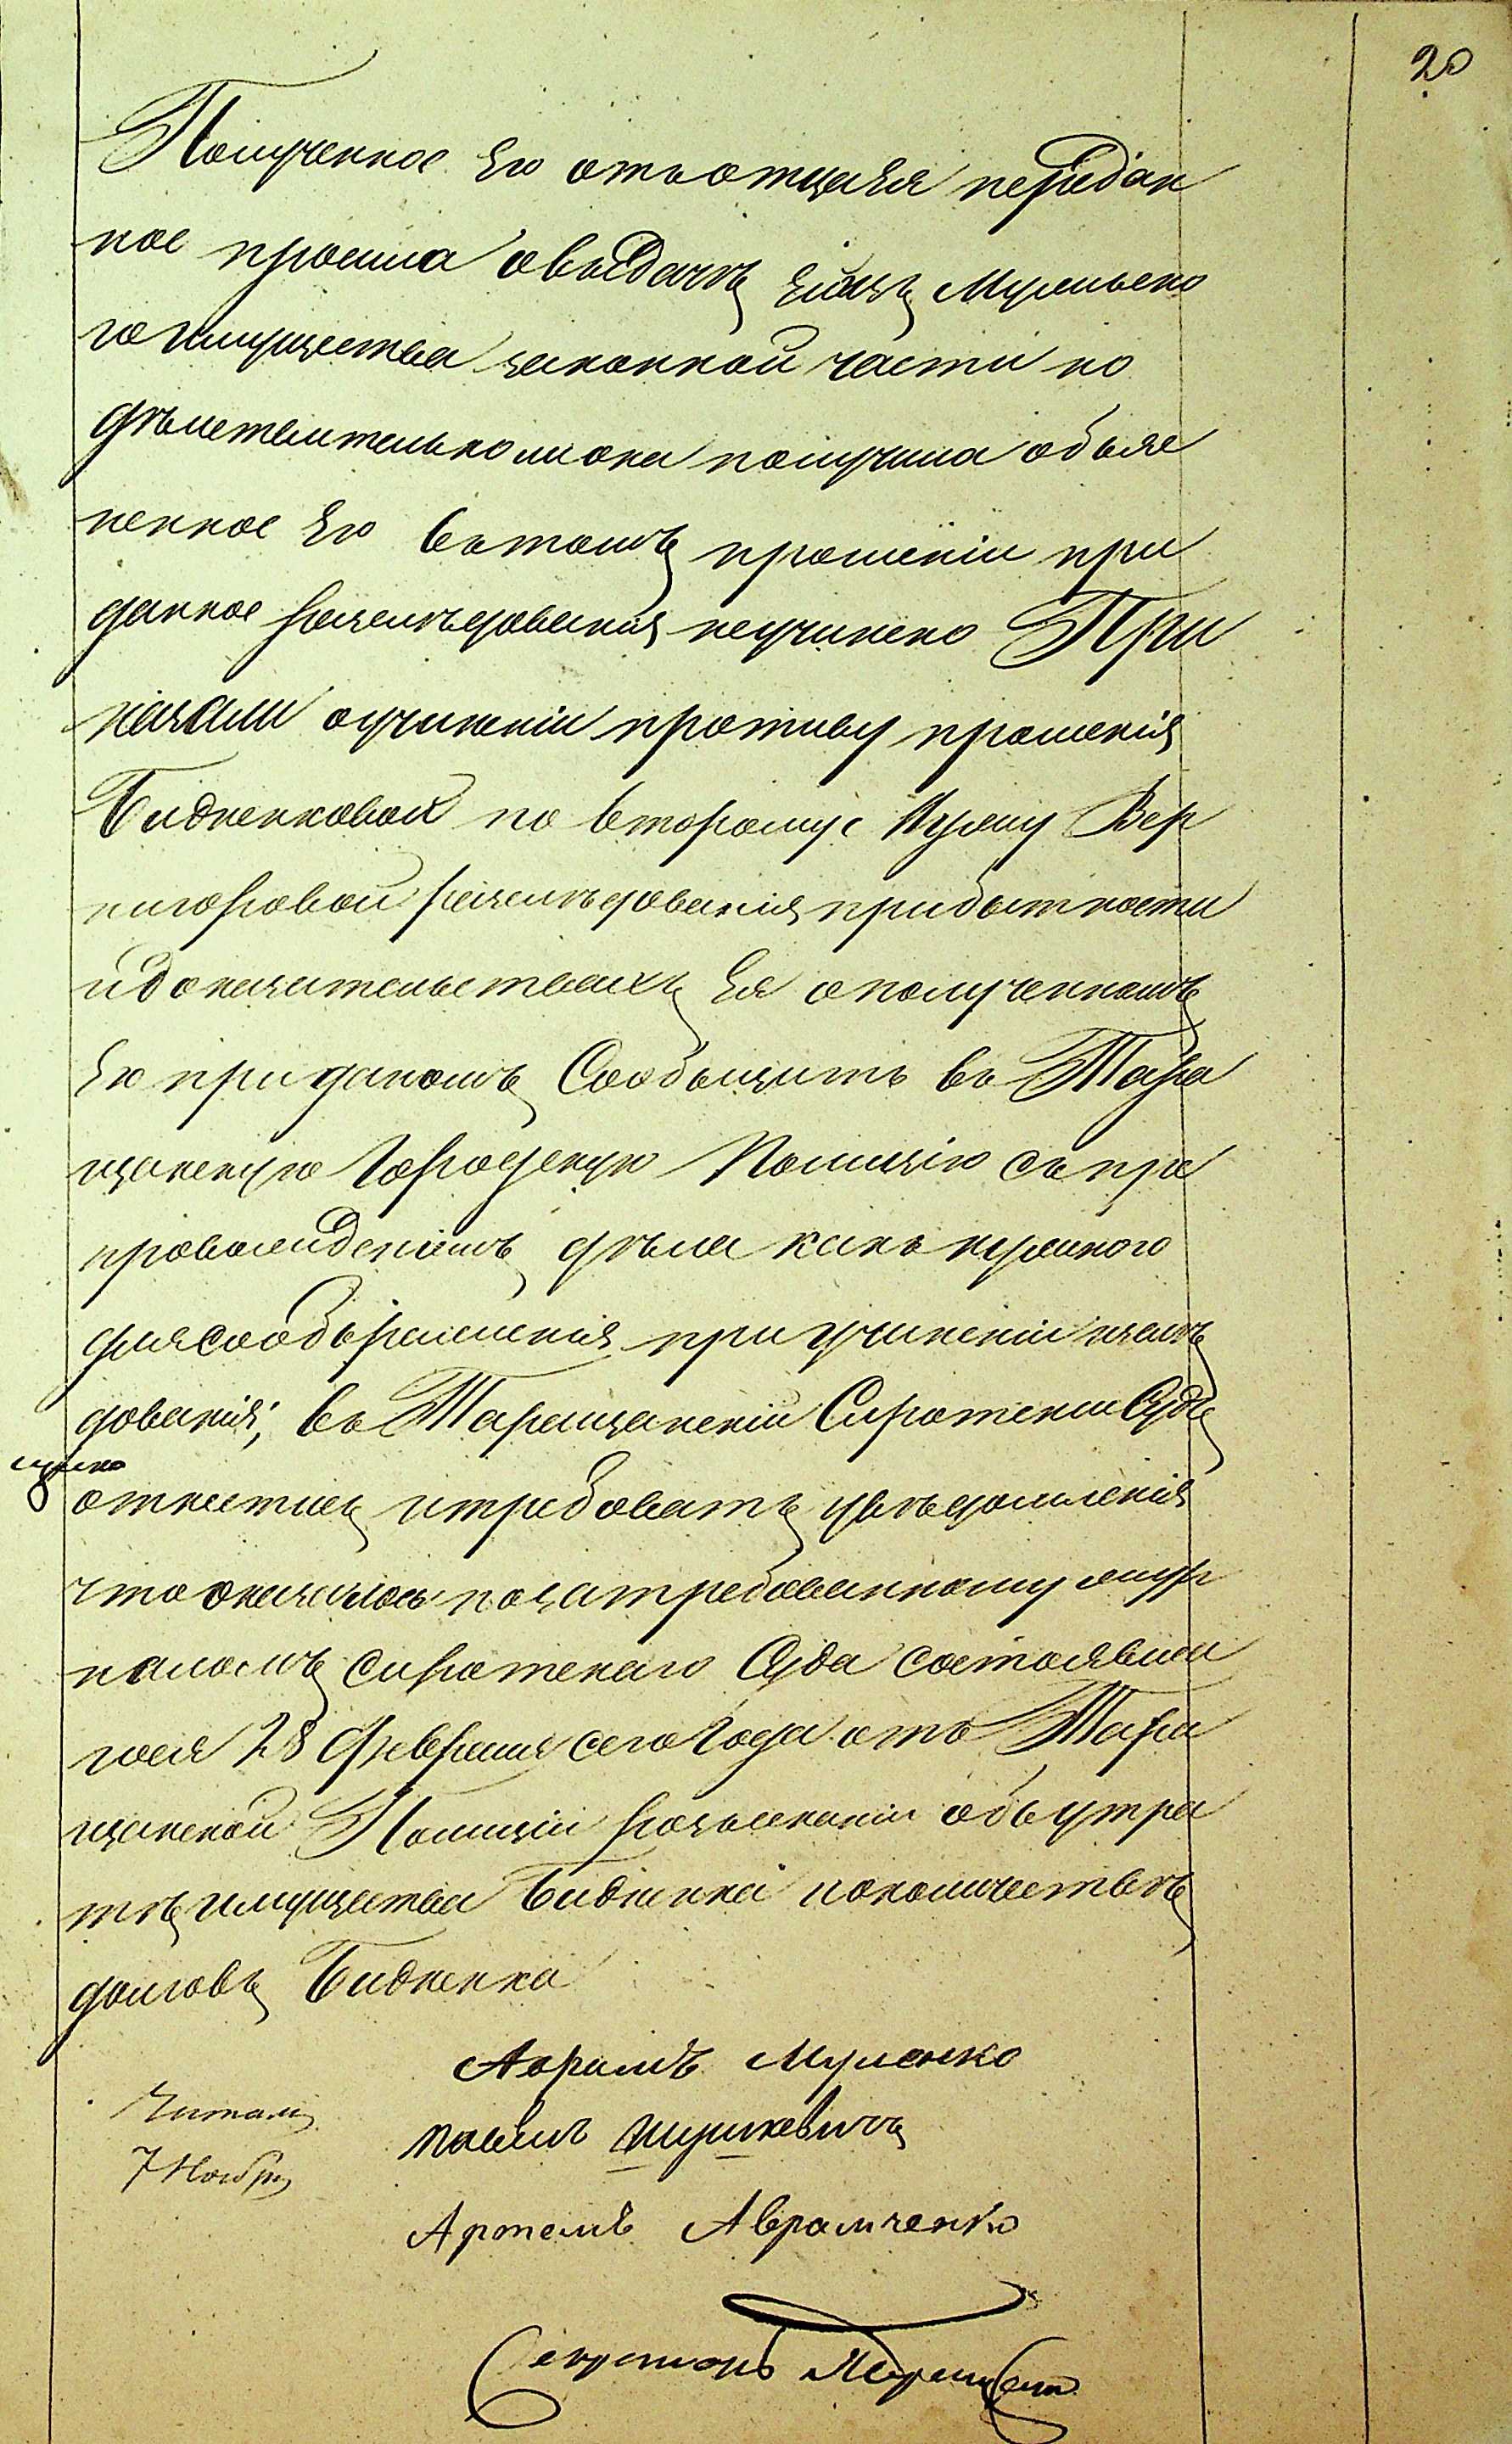 20
Полученное Ею отъ отца Ея передан
ное просила овыдачѣ Ей изъ Мужьско
го имущества законной части но
дѣйствительно ли она получила объяс
ненное Ею въ томъ прошеніи при
данное разслѣдованія неучинено При
казали оучиненіи противу прошенія
Бидненковой по второму Мужу Вер
нигоровой разслѣдованія прибытности
идоказательствахъ Ея ополученномъ
Ею приданомъ Сообщить въ Тара
щанскую Городскую Полицію съ пре
провожденіемъ дѣла какъ нужного
для соображенія при учиненіи изслѣ
дованія; въ Таращанскій Сиротскій Судъ
отнестись итребовать увѣдомленія
что оказалось по затребованному жур
наломъ сиротскаго Суда состоявшем
гося 28 Февраля сего Года отъ Тара
щанской Полиціи розысканіи объ утра
тѣ имущества Бидненка и околичествѣ
долговъ Бидненка
Аврамъ Мусенко
Павелъ
Артемъ Аврамченко
Читалъ
7 Ноября
Секретарь